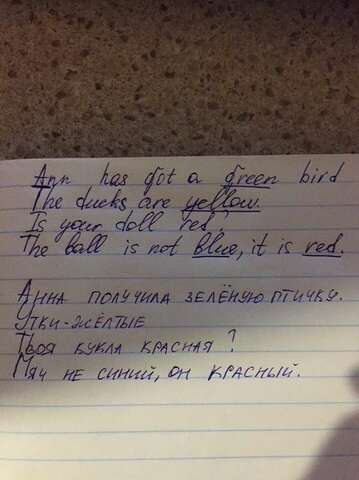 Ann has got a green bird
The ducks are yellow.
Is your doll red?
The ball is not blue, it is red.
Анна получила зелёную птичку.
Утки-жёлтые
Твоя кукла красная?
Мяч не синий, он красный.